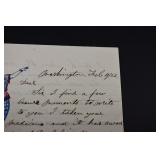 Washington Feb 9/62
Sir I find a few
leisure moments to write
to you I taken your
and it has